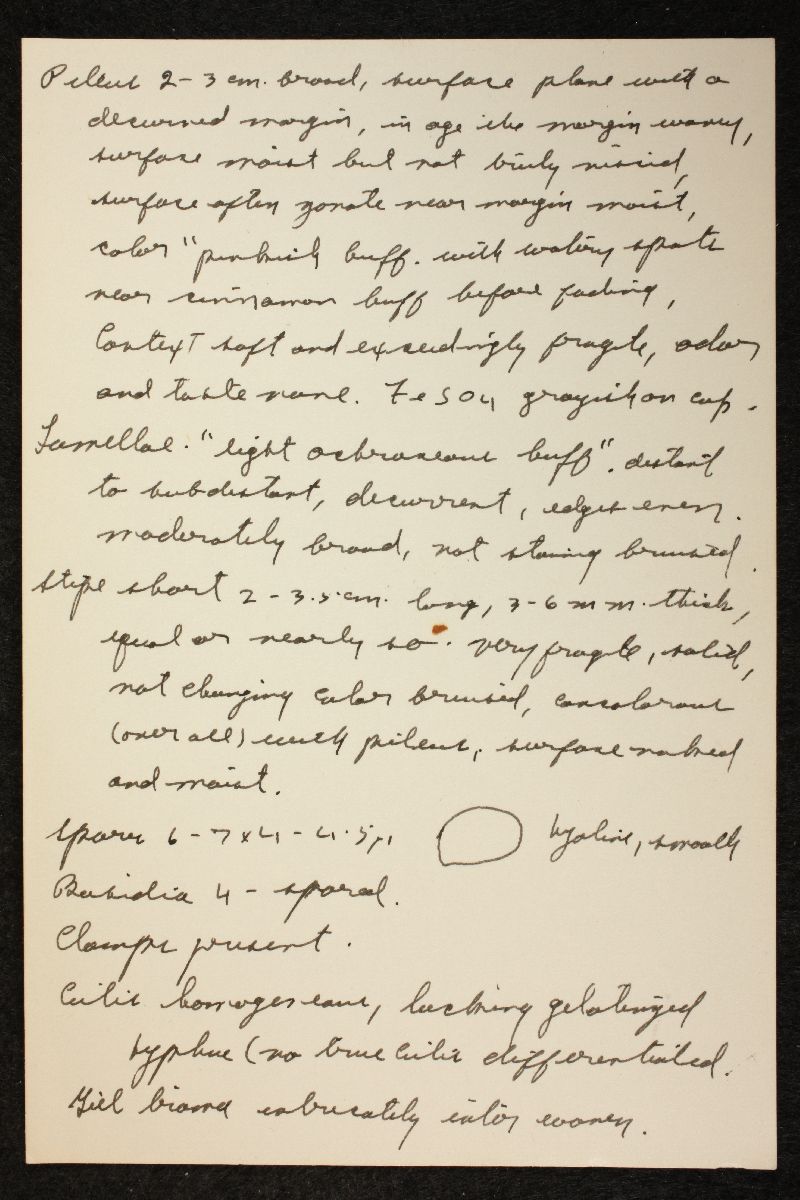 Pileus 2-3 cm. broad, surface plane with a
decurved margin, in age the margin wavy,
surface moist but not truly viscid,
surface often zonate near margin moist,
color "pinkish buff. with watery spots
near cinnamon buff before fading,
Context soft and exceedingly fragile, odor
and taste none. FeSO4 grayish on cap.
Lamellae. "light ochraceous buff". distant
to subdistant, decurrent, edges even.
moderately broad, not staining bruised.
Stipe short 2-3.5 cm. long, 3-6 mm. thick,
equal or nearly so. very fragile, solid,
not changing color bruised, concolorous
(over all) with pileus, surface naked
and moist.
Spores 6-7 x 4-4.5 µ hyaline, smooth
Basidia 4-spored.
Clamps present.
Cutis homogeneous, lacking gelatinized
hyphae (no true cutis differentiated.
Gill trama intricately interwoven.